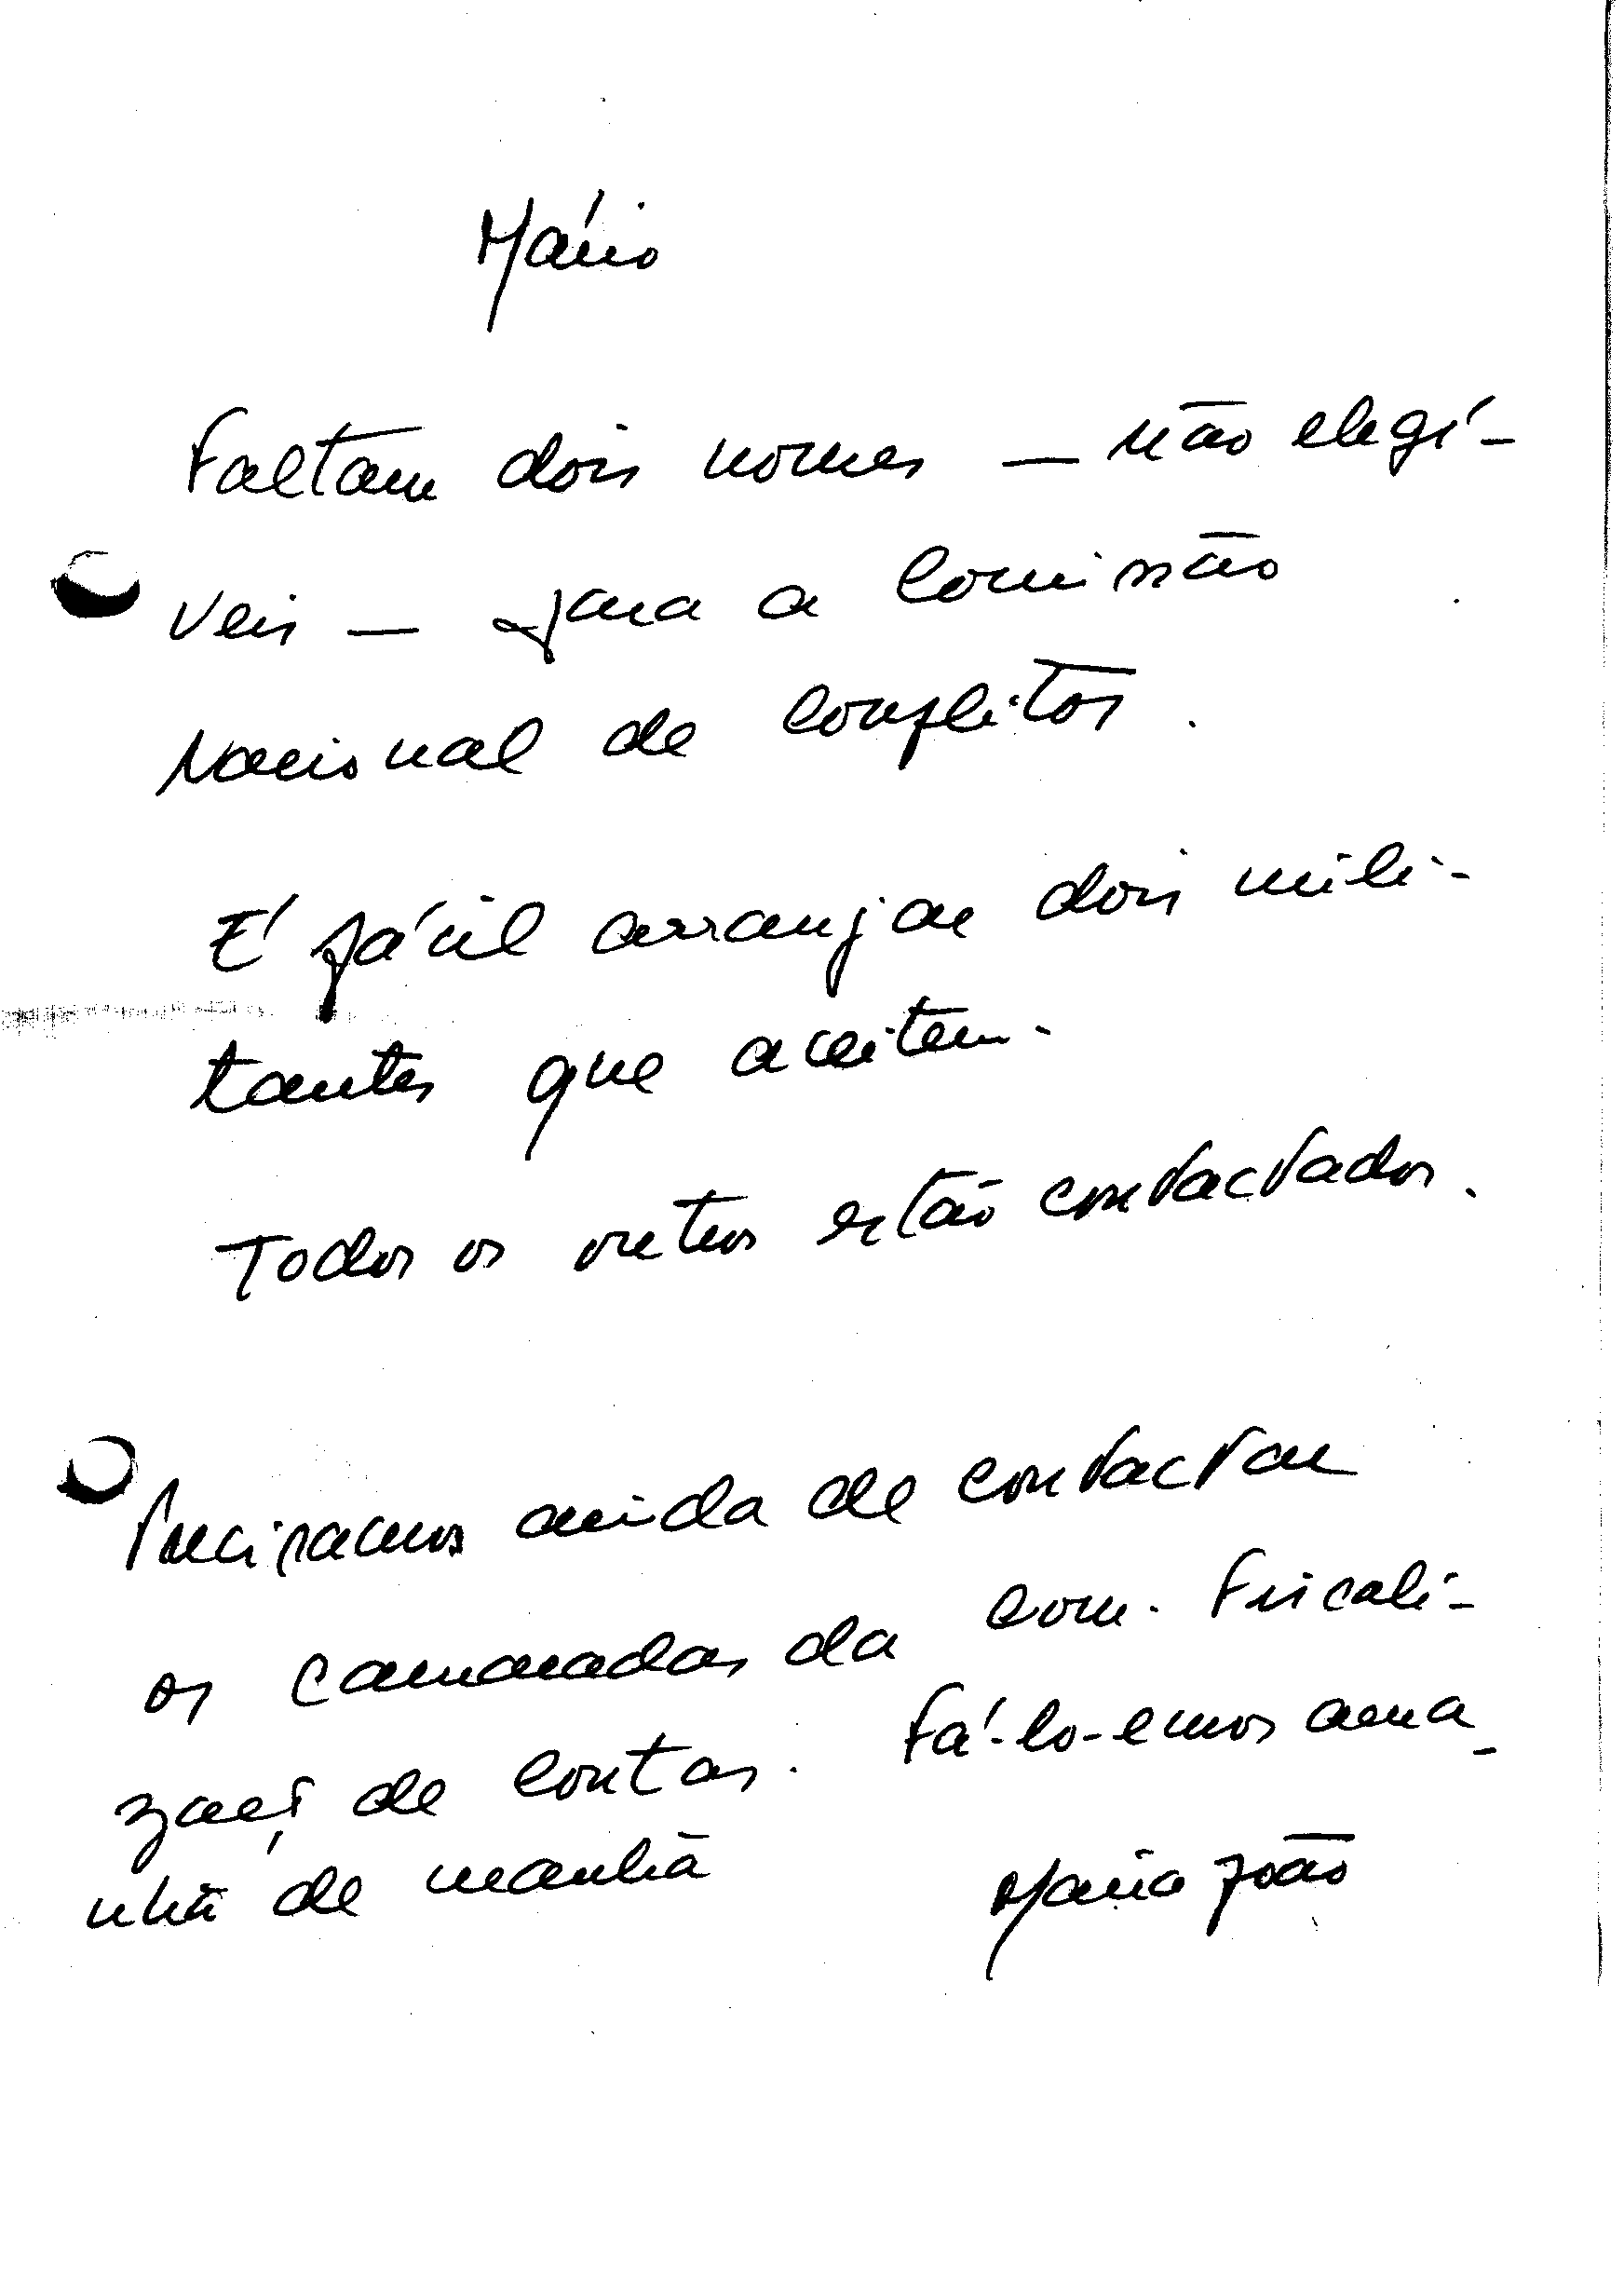 Mário
Faltam dois nomes — não elegí-
veis — para a Comissão
Nacional de Conflitos.
É fácil arranjar dois mili-
tantes que aceitem.
Todos os outros estão contactados.
Precisamos ainda de contactar
os camaradas da Com. Fiscali-
zação de Contas. Fá-lo-emos ama-
nhã de manhã
Maria João